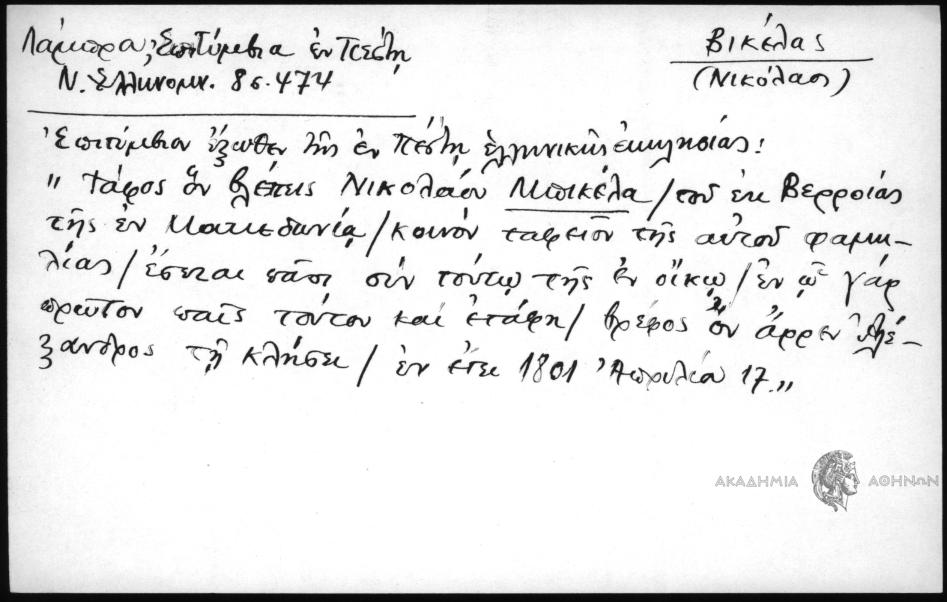 Λάμπρα, Ἐπιτύμβια ἐν Πέστῃ
Ν. Ἑλληνομν. 8 σ. 474
Βικέλας
(Νικόλαος)
Ἐπιτύμβιον ἔξωθεν τῆς ἐν Πέστῃ ἑλληνικῆς ἐκκλησίας:
„ Τάφος ὃν βλέπεις Νικολάου Μπικέλα / τοῦ ἐκ Βερροίας
τῆς ἐν Μακεδονίᾳ / κοινὸν ταφεῖον τῆς αὐτοῦ φαμι-
λίας / ἔσεται πᾶσι σὺν τούτῳ τῆς ἐν οἴκῳ / ἐν ᾧ γάρ
πρῶτον παῖς τούτου καὶ ἐτάφη / βρέφος ὂν ἄρρεν Ἀλέ-
ξανδρος τῇ κλήσει / ἐν ἔτει 1801 Ἀπριλία 17.„
ΑΚΑΔΗΜΙΑ ΑΘΗΝΩΝ